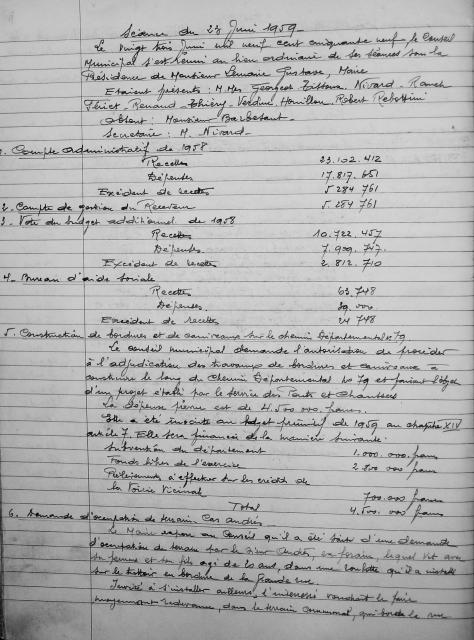 Séance du 23 Juin 1959
Le vingt trois Juin mil neuf cent cinquante neuf le Conseil
Municipal s'est réuni au lieu ordinaire de ses séances sous la
Présidence de Monsieur Lemaire Gustave, Maire
Etaient présents : M.Mrs Georges Nivard -
Renaud - Thiéry - Verdun, Robert
Absent : Monsieur
Secrétaire : M. Nivard -
1. Compte administratif de 1958
Recettes 23.102.412
Dépenses 17.817.651
Excédent de recettes 5 284 761
2. Compte de gestion du Receveur 5 284 761
3. Vote du budget additionnel de 1958
Recettes 10.722.457
Dépenses 7.909.747.
Excédent de recettes 2.812.710
4. Bureau d'aide Sociale
Recettes 63.748
Dépenses. 39.000
Excédent de recettes 24 748
5. Construction de bordures et de caniveaux sur le chemin Départemental N° 79
Le conseil municipal demande l'autorisation de procéder
à l'adjudication des travaux de bordures et caniveaux à
construire le long du Chemin Départemental No 79 et faisant l'objet
d'un projet établi par le service des Ponts et Chaussées
La dépense prévue est de 4.500.000. francs.
Elle a été inscrite au budget primitif de 1959 au chapitre XIV
article 7. Elle sera financée de la manière suivante.
Subvention du département 1.000.000. francs
Fonds libres de l'exercice 2.800 000 francs
Prélèvements à effectuer sur les crédits de
la Voirie Vicinale 700.000 francs
Total 4.500.000 francs
6. Demande d'occupation de terrain Cas André
Le Maire expose au Conseil qu'il a été saisi d'une demande
d'occupation de terrain par le Sieur André, ex forain, lequel vit avec
sa femme et un fils agé de 20 ans, dans une roulotte qu'il a installé
sur le trottoir en bordure de la Grande rue.
Invité à s'installer ailleurs, l'intéressé voudrait le faire
moyennant redevance, dans le terrain communal, qui borde la rue